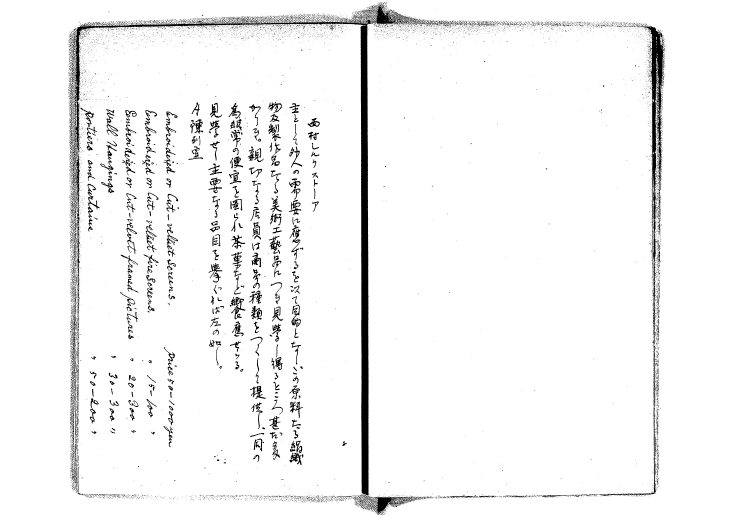 西村しルクストーア
主として外人の需要に應ずるを以て目的となし、この原料たる絹織
物及製作品たる美術工藝品につき見學し得るところ甚だ多
かりき。親切なる店員は商品の種類をつくして提供し、一同の
為非常の便宜を圖られ茶菓など饗應せらる。
見學せし主要なる品目を擧ぐれば左の如し。
A 陳列室
Embroidered or Cut-velvet Screens. Price 50-1000 yen
Embroidered or Cut-velvet fire Screens. " 15-100 "
Embroidered or Cut-velvet framed pictures " 20-300 "
Wall Hangings " 30-300 "
Portiers and Curtains " 50-200 "